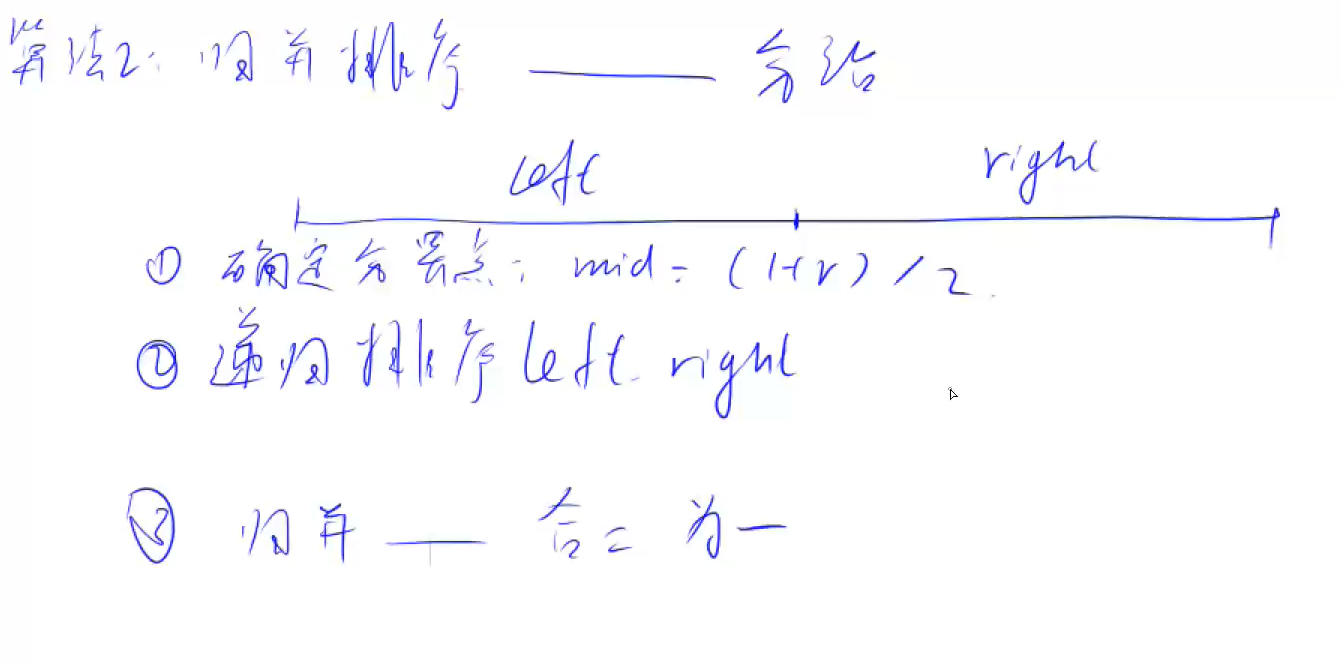 算法2: 归并排序 —— 分治
left right
① 确定分界点: mid = (l+r)/2.
② 递归排序 left. right
③ 归并 —— 合二为一